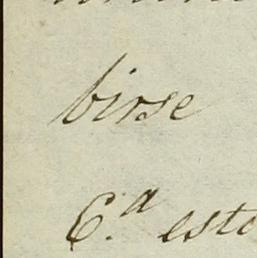 birse
E.ª esto